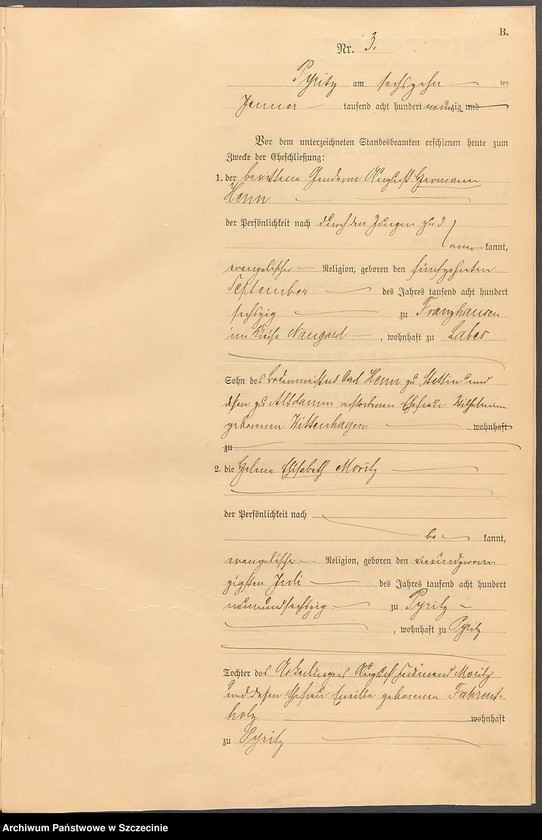 B.
Nr. 3.
Pyritz am sechszehn ten
Januar tausend acht hundert neunzig und
Vor dem unterzeichneten Standesbeamten erschienen heute zum
Zwecke der Eheschließung:
1. der berittene Gendarm August Hermann
Henn
der Persönlichkeit nach durch den Zeugen zu 3
aner kannt,
evangelischer Religion, geboren den fünfzehnten
September des Jahres tausend acht hundert
sechszig zu Franzhausen
im Kreise Naugard, wohnhaft zu Labes
Sohn des Bodenmeisters Carl Henn zu Stettin und
dessen zu Altdamm verstorbenen Ehefrau Wilhelmine
geborenen Wittenhagen wohnhaft
zu
2. die Helene Elisabeth Moritz
der Persönlichkeit nach
be kannt,
evangelischer Religion, geboren den
zigsten Juli des Jahres tausend acht hundert
neunundsechszig zu Pyritz
, wohnhaft zu Pyritz
Tochter des August Ferdinand Moritz
und dessen Ehefrau Emilie geborenen Fahrent-
holz wohnhaft
zu Pyritz
Archiwum Państwowe w Szczecinie